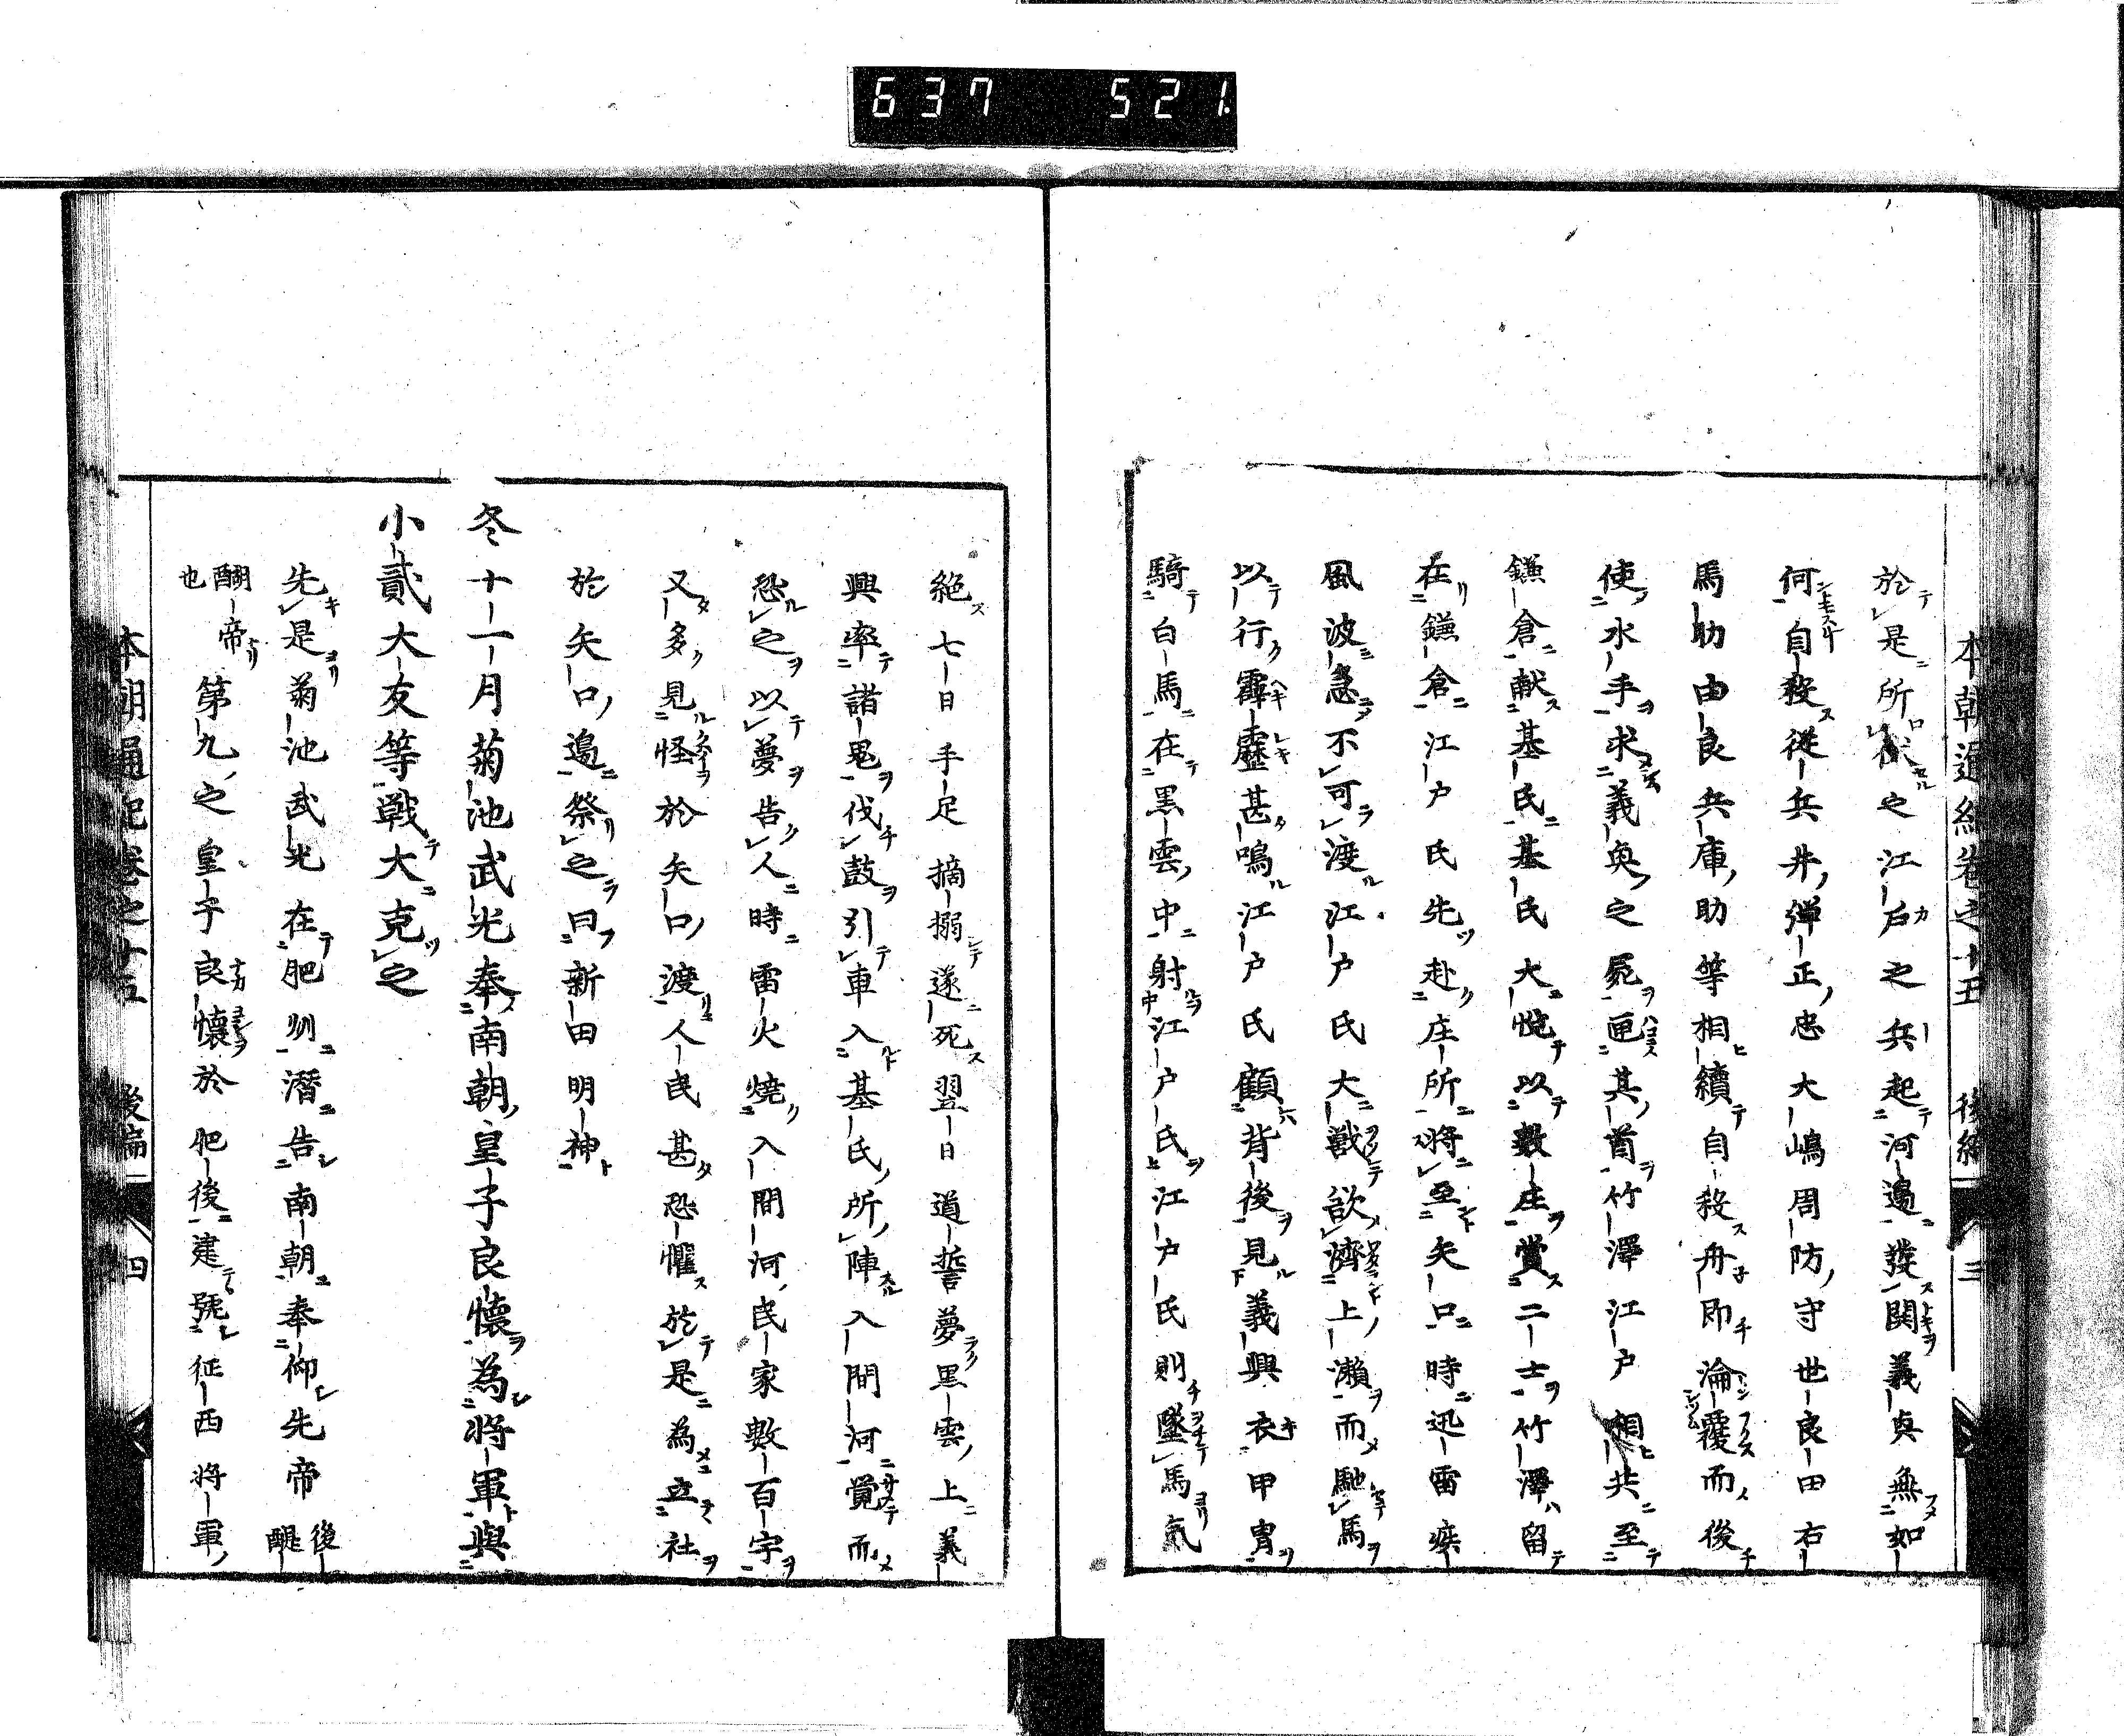 637 521
本朝通紀卷之十五 後編 三
於是所伏之江戸之兵起河邉發鬨義興無如
何自殺從兵井彈正忠大嶋周防守世良田右
馬助由良兵庫助等相續自殺舟即淪覆而後
使水手求義興之屍匣其首竹澤江戸相共至
鎌倉献基氏基氏大悦以數庄賞二士竹澤留
在鎌倉江戸氏先赴庄所將至矢口時迅雷疾
風波急不可渡江戸氏大獣欲濟上瀬而馳馬
以行霹靂甚鳴江戸氏顧背後見義興衣甲冑
騎白馬在黒雲中射江戸氏江戸氏則墜馬氣
絶七日手足摘搦遂死翌日道誓夢黒雲上義
興率諸鬼伐鼓引車入基氏所陣入間河覺而
恐之以夢告人時雷火燒入間河民家數百宇
又多見怪於矢口渡人民甚恐懼於是為立社
於矢口邉祭之曰新田明神
冬十一月菊池武光奉南朝皇子良懷為將軍與
小貳大友等戰大克之
先是菊池武光在肥州潛告南朝奉仰先帝後醍
醐帝也第九之皇子良懷於肥後建號征西將軍
本朝通紀卷之十五 後編 四